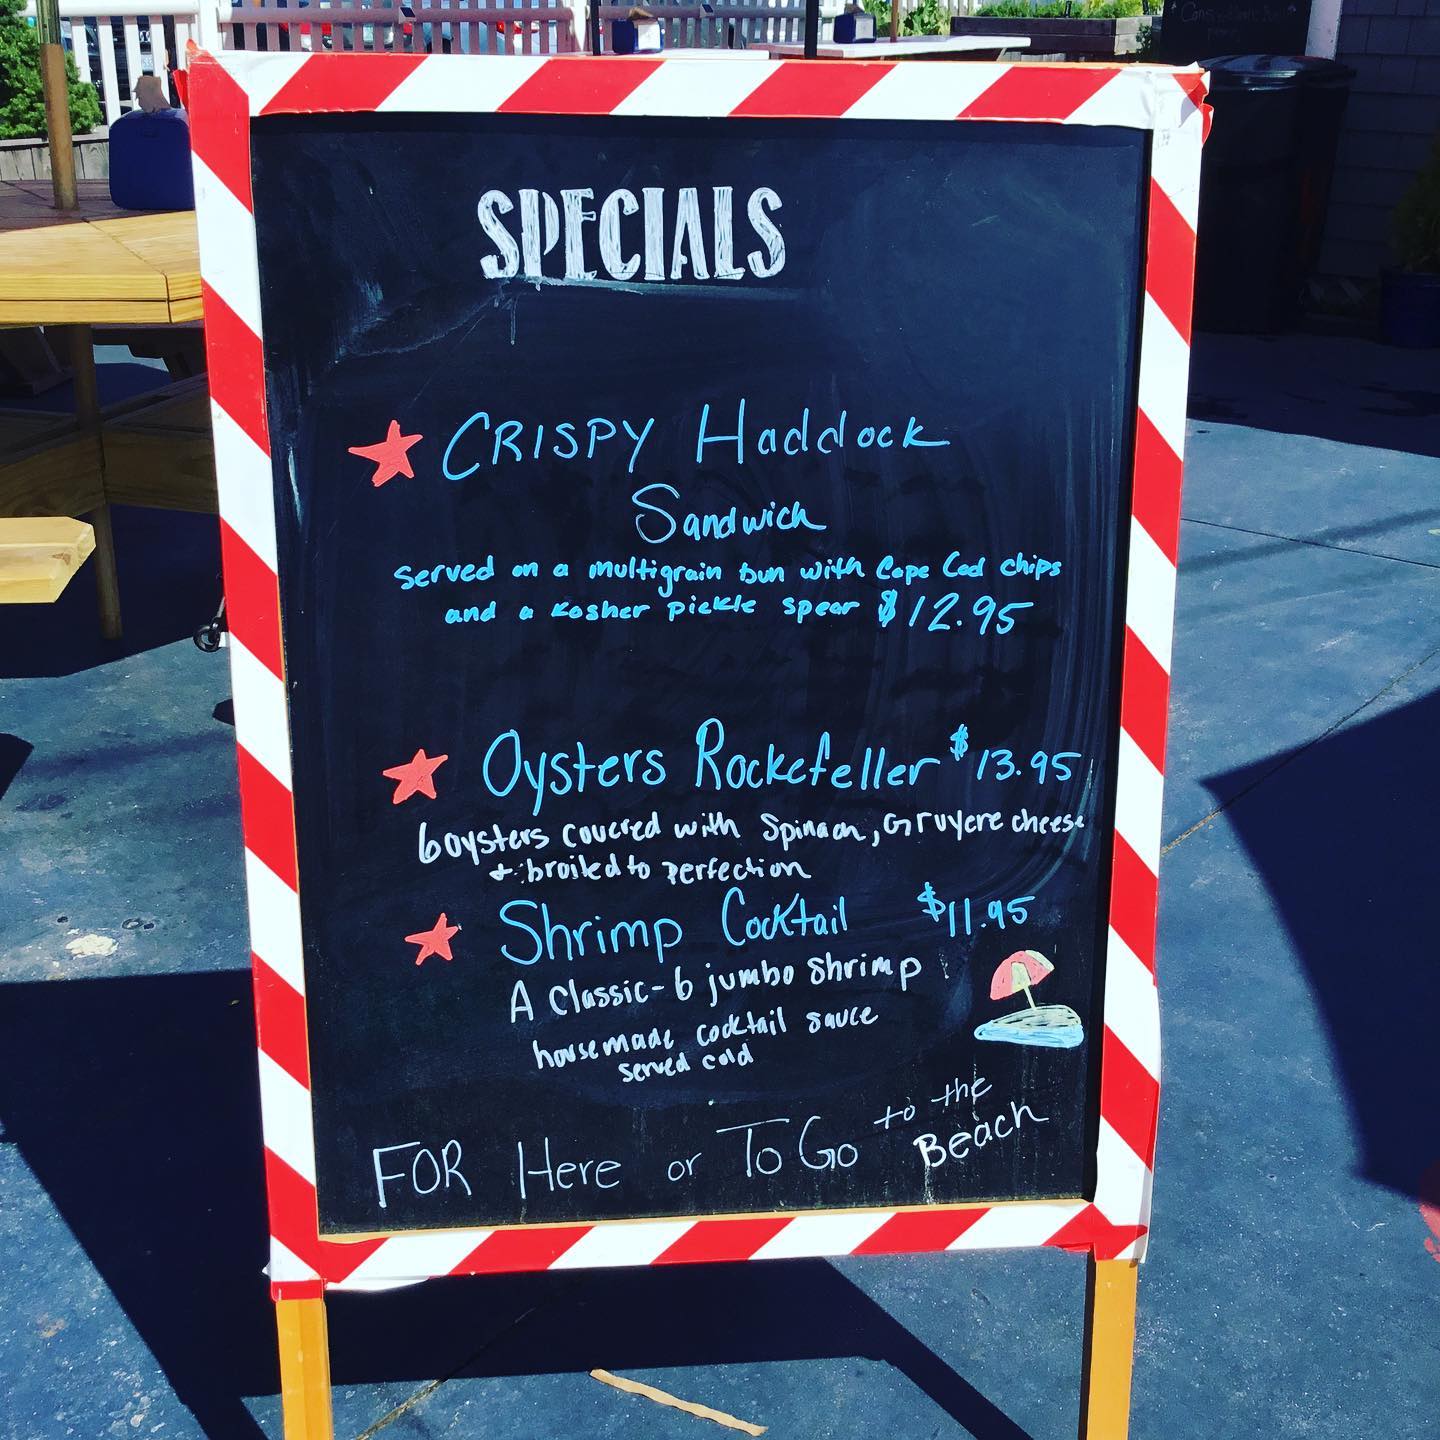 SPECIALS
CRISPY Haddock
Sandwich
served on a multigrain bun with Cape Cod chips
and a kosher pickle spear $12.95
Oysters Rockefeller $13.95
6 oysters covered with Spinach, Gruyere cheese
+ broiled to perfection
Shrimp Cocktail $11.95
A Classic - 6 jumbo shrimp
housemade cocktail sauce
served cold
FOR Here or To Go to the
Beach